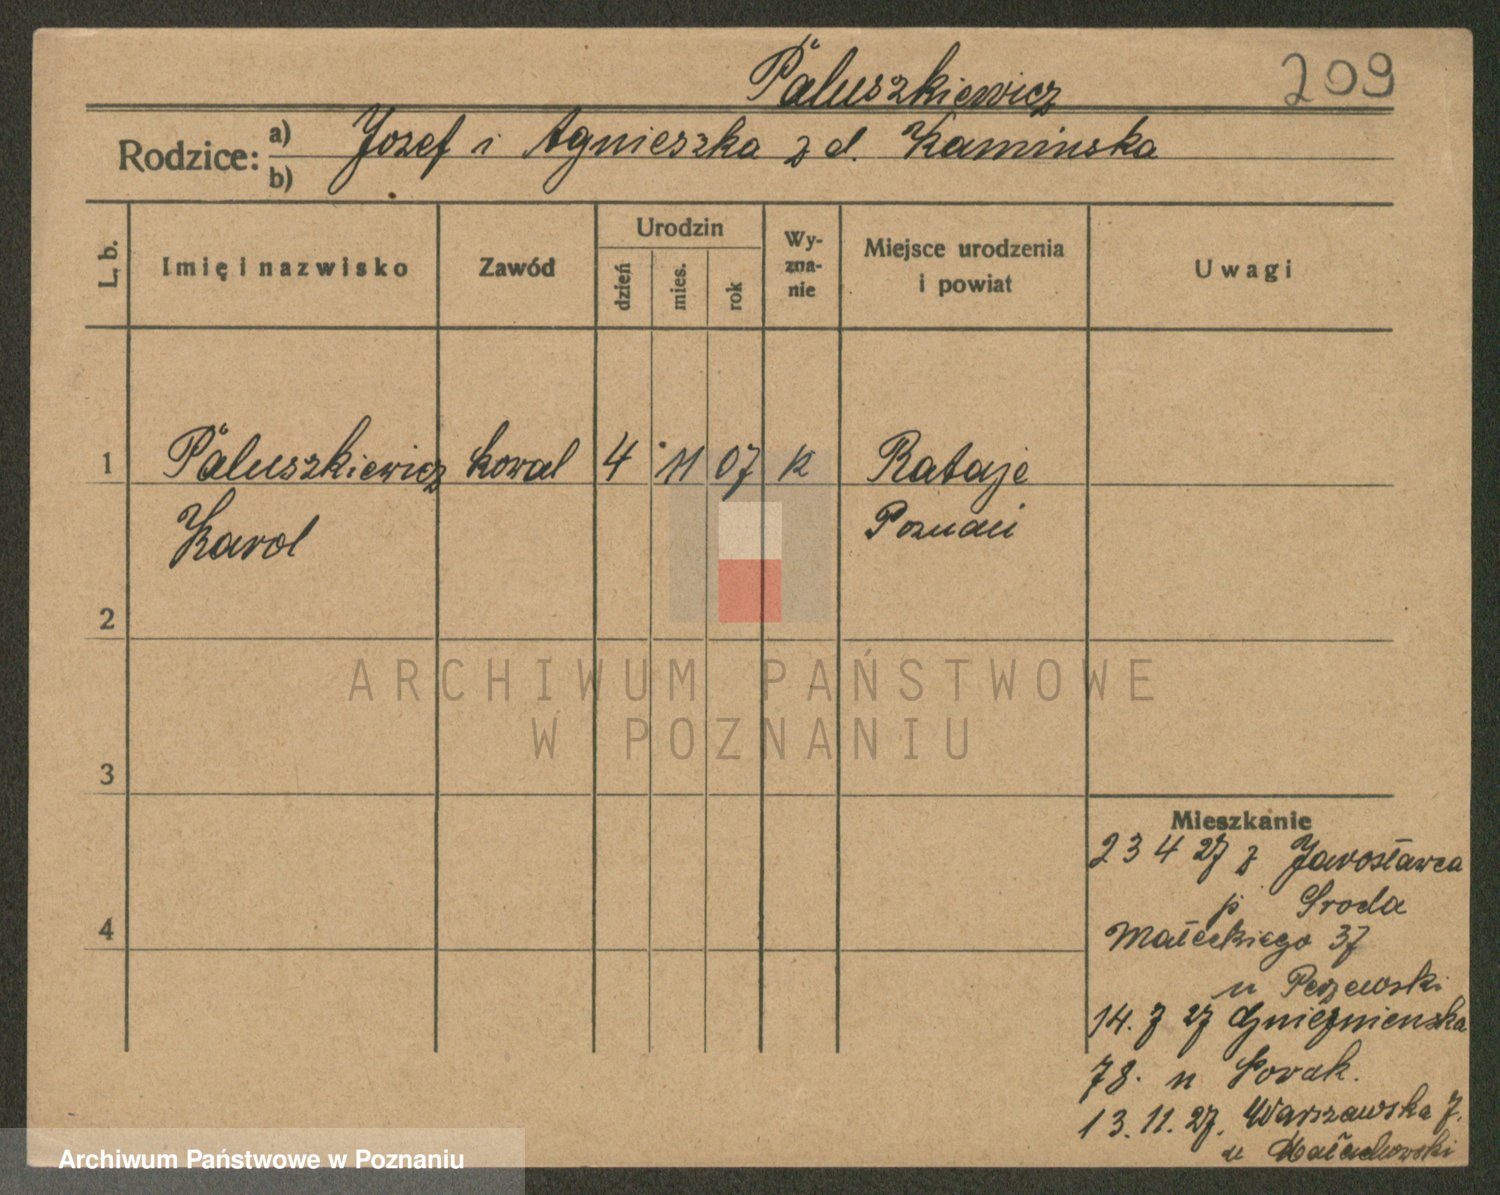 Paluszkiewicz 209
Rodzice: a) Jozef i Agnieszka z d. Kaminska
b)
L. b. Imię i nazwisko Zawód Urodzin Wy-
zna-
nie Miejsce urodzenia
i powiat Uwagi
dzień mies. rok
1 Paluszkiewicz kowal 4 11 07 k Rataje
Karol Poznań
2
ARCHIWUM PAŃSTWOWE
W POZNANIU
3
Mieszkanie
23 4 27 z Jarosławca
p Sroda
4 Małeckiego 37
u
14. 7 27 Gnieźnienska
78. u
13. 11. 27. Warszawska 7.
u Małachowski
Archiwum Państwowe w Poznaniu